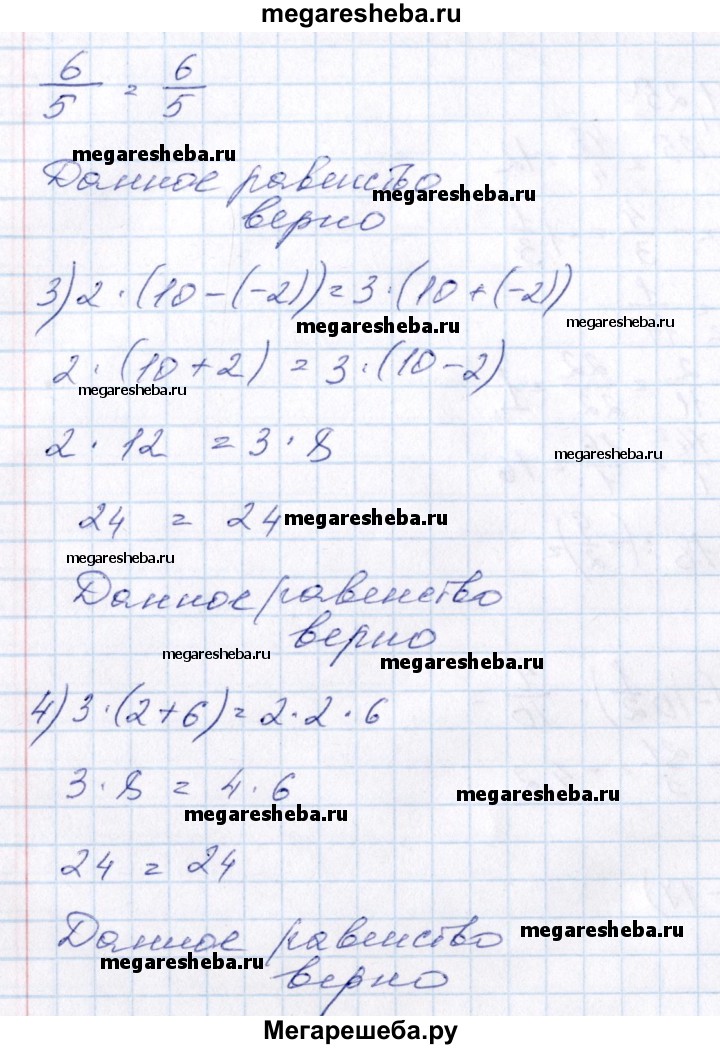 megaresheba.ru
6/5 = 6/5
megaresheba.ru
Данное равенство
megaresheba.ru
верно
3) 2 · (10 - (-2)) = 3 · (10 + (-2))
megaresheba.ru
megaresheba.ru
2 · (10 + 2) = 3 · (10 - 2)
megaresheba.ru
2 · 12 = 3 · 8
megaresheba.ru
24 = 24
megaresheba.ru
megaresheba.ru
Данное равенство
верно
megaresheba.ru
megaresheba.ru
4) 3 · (2 + 6) = 2 · 2 · 6
3 · 8 = 4 · 6
megaresheba.ru
megaresheba.ru
24 = 24
Данное равенство
megaresheba.ru
megaresheba.ru
верно
Мегарешеба.ру